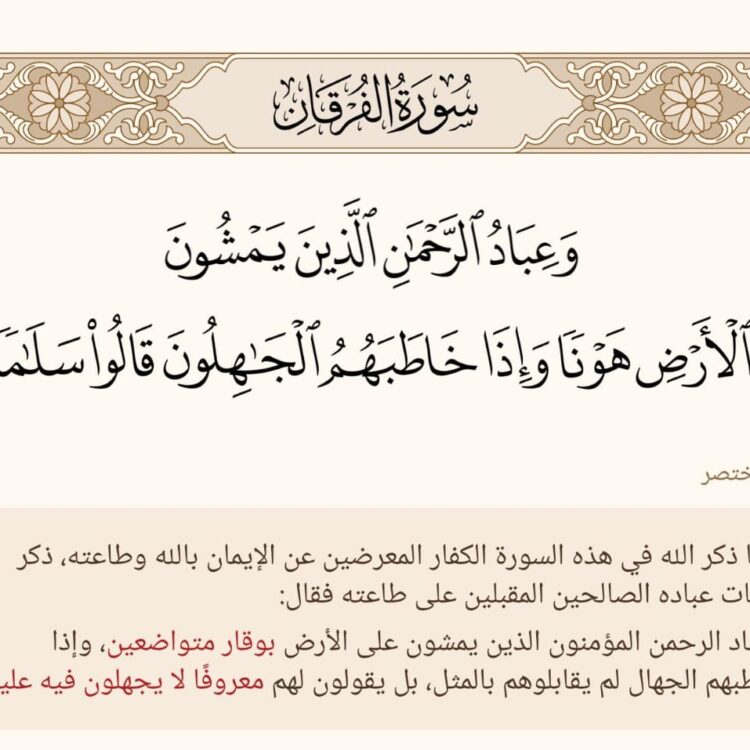 سُورَةُ الفُرْقَانِ
وَعِبَادُ ٱلرَّحْمَٰنِ ٱلَّذِينَ يَمْشُونَ
ٱلْأَرْضِ هَوْنًا وَإِذَا خَاطَبَهُمُ ٱلْجَٰهِلُونَ قَالُوا۟ سَلَٰمًا
ذكر الله في هذه السورة الكفار المعرضين عن الإيمان بالله وطاعته، ذكر
عباده الصالحين المقبلين على طاعته فقال:
الرحمن المؤمنون الذين يمشون على الأرض بوقار متواضعين، وإذا
الجهال لم يقابلوهم بالمثل، بل يقولون لهم معروفًا لا يجهلون فيه